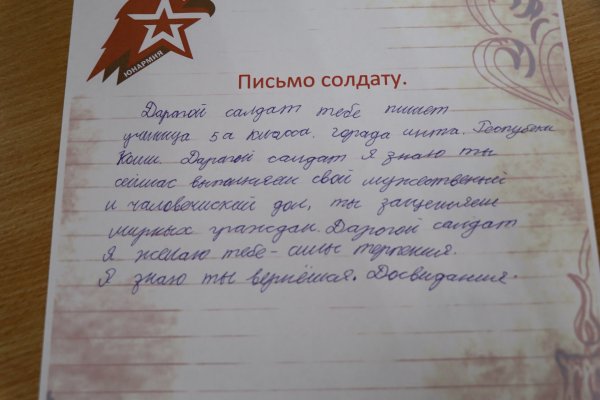 ЮНАРМИЯ
Письмо солдату.
Дарагой салдат тебе пишет
ученица 5а класса. города инта. Республеки
Коми. Дарагой салдат Я знаю ты
сейчас выполняеш свой мужественный
и чаловечиский дол, ты защещяеш
мирных граждан. Дарагой салдат
Я желаю тебе - силы терпения.
Я знаю ты вернёшся. Досвидания.